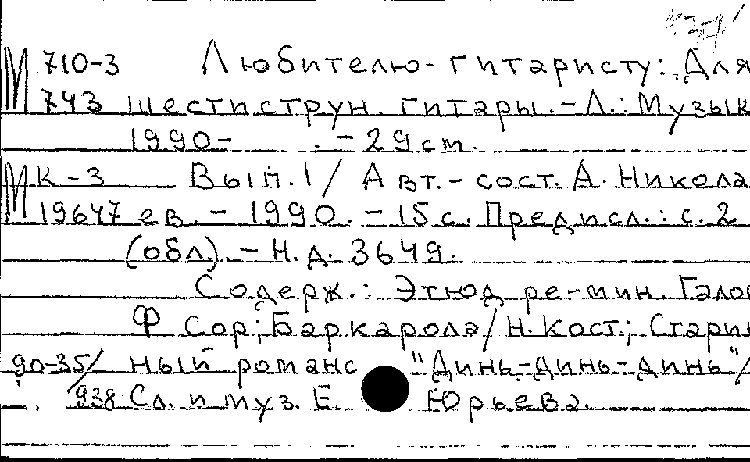 М 710-3 Любителю-гитаристу: Для
743 шестиструн. гитары. - Л.: Музык
1990- . - 29 см.
М К-3 Вып. 1 / Авт.-сост. А. Никола
19647 ев. - 1990. - 15 с. Предисл.: с. 2
(обл.). - Н.д. 3649.
Содерж.: Этюд ре-мин. Галоп
Ф Сор; Баркарола / Н. Кост.; Старин
90-35/ ный романс "Динь-динь-динь" /
938 Сл. и муз. Е Юрьева.